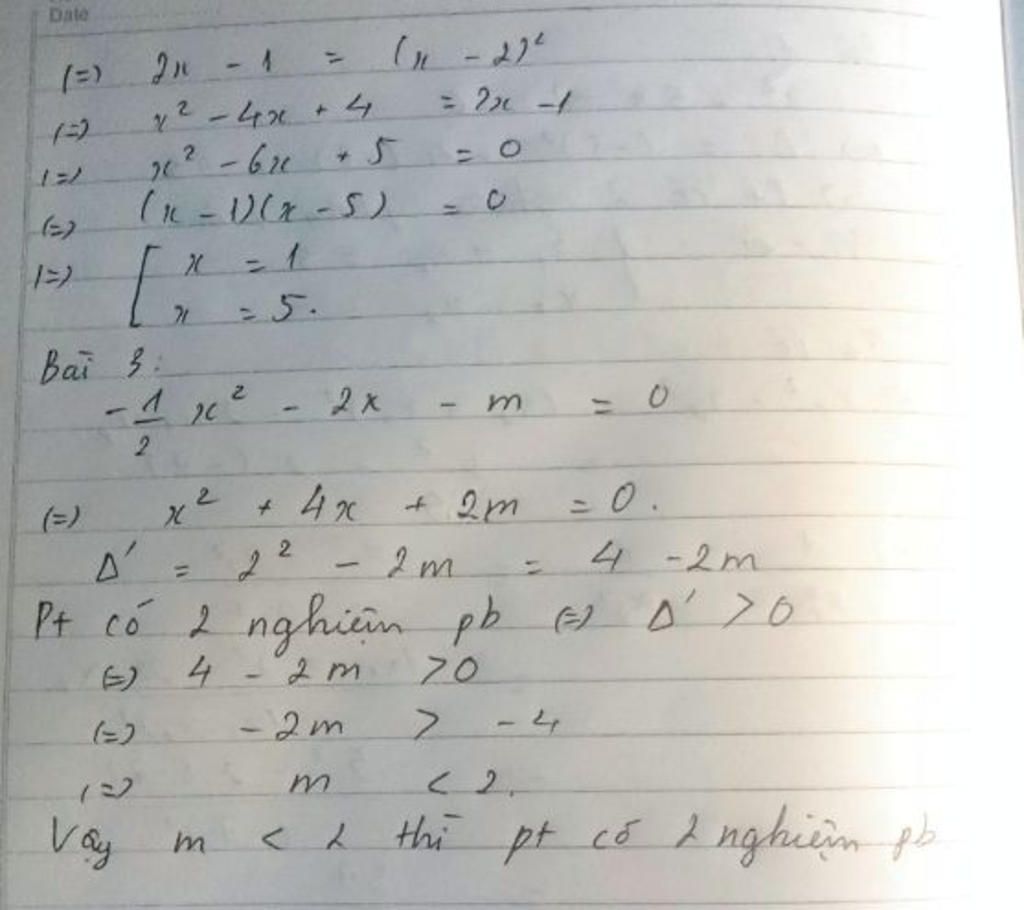 Date
(=) 2x - 1 = (x - 2)²
(=) x² - 4x + 4 = 2x - 1
(=) x² - 6x + 5 = 0
(=) (x - 1)(x - 5) = 0
(=) [ x = 1
x = 5.
Bài 3:
-1/2 x² - 2x - m = 0
(=) x² + 4x + 2m = 0.
Δ' = 2² - 2m = 4 - 2m
Pt có 2 nghiệm pb (=) Δ' > 0
(=) 4 - 2m > 0
(=) -2m > -4
(=) m < 2.
Vậy m < 2 thì pt có 2 nghiệm pb